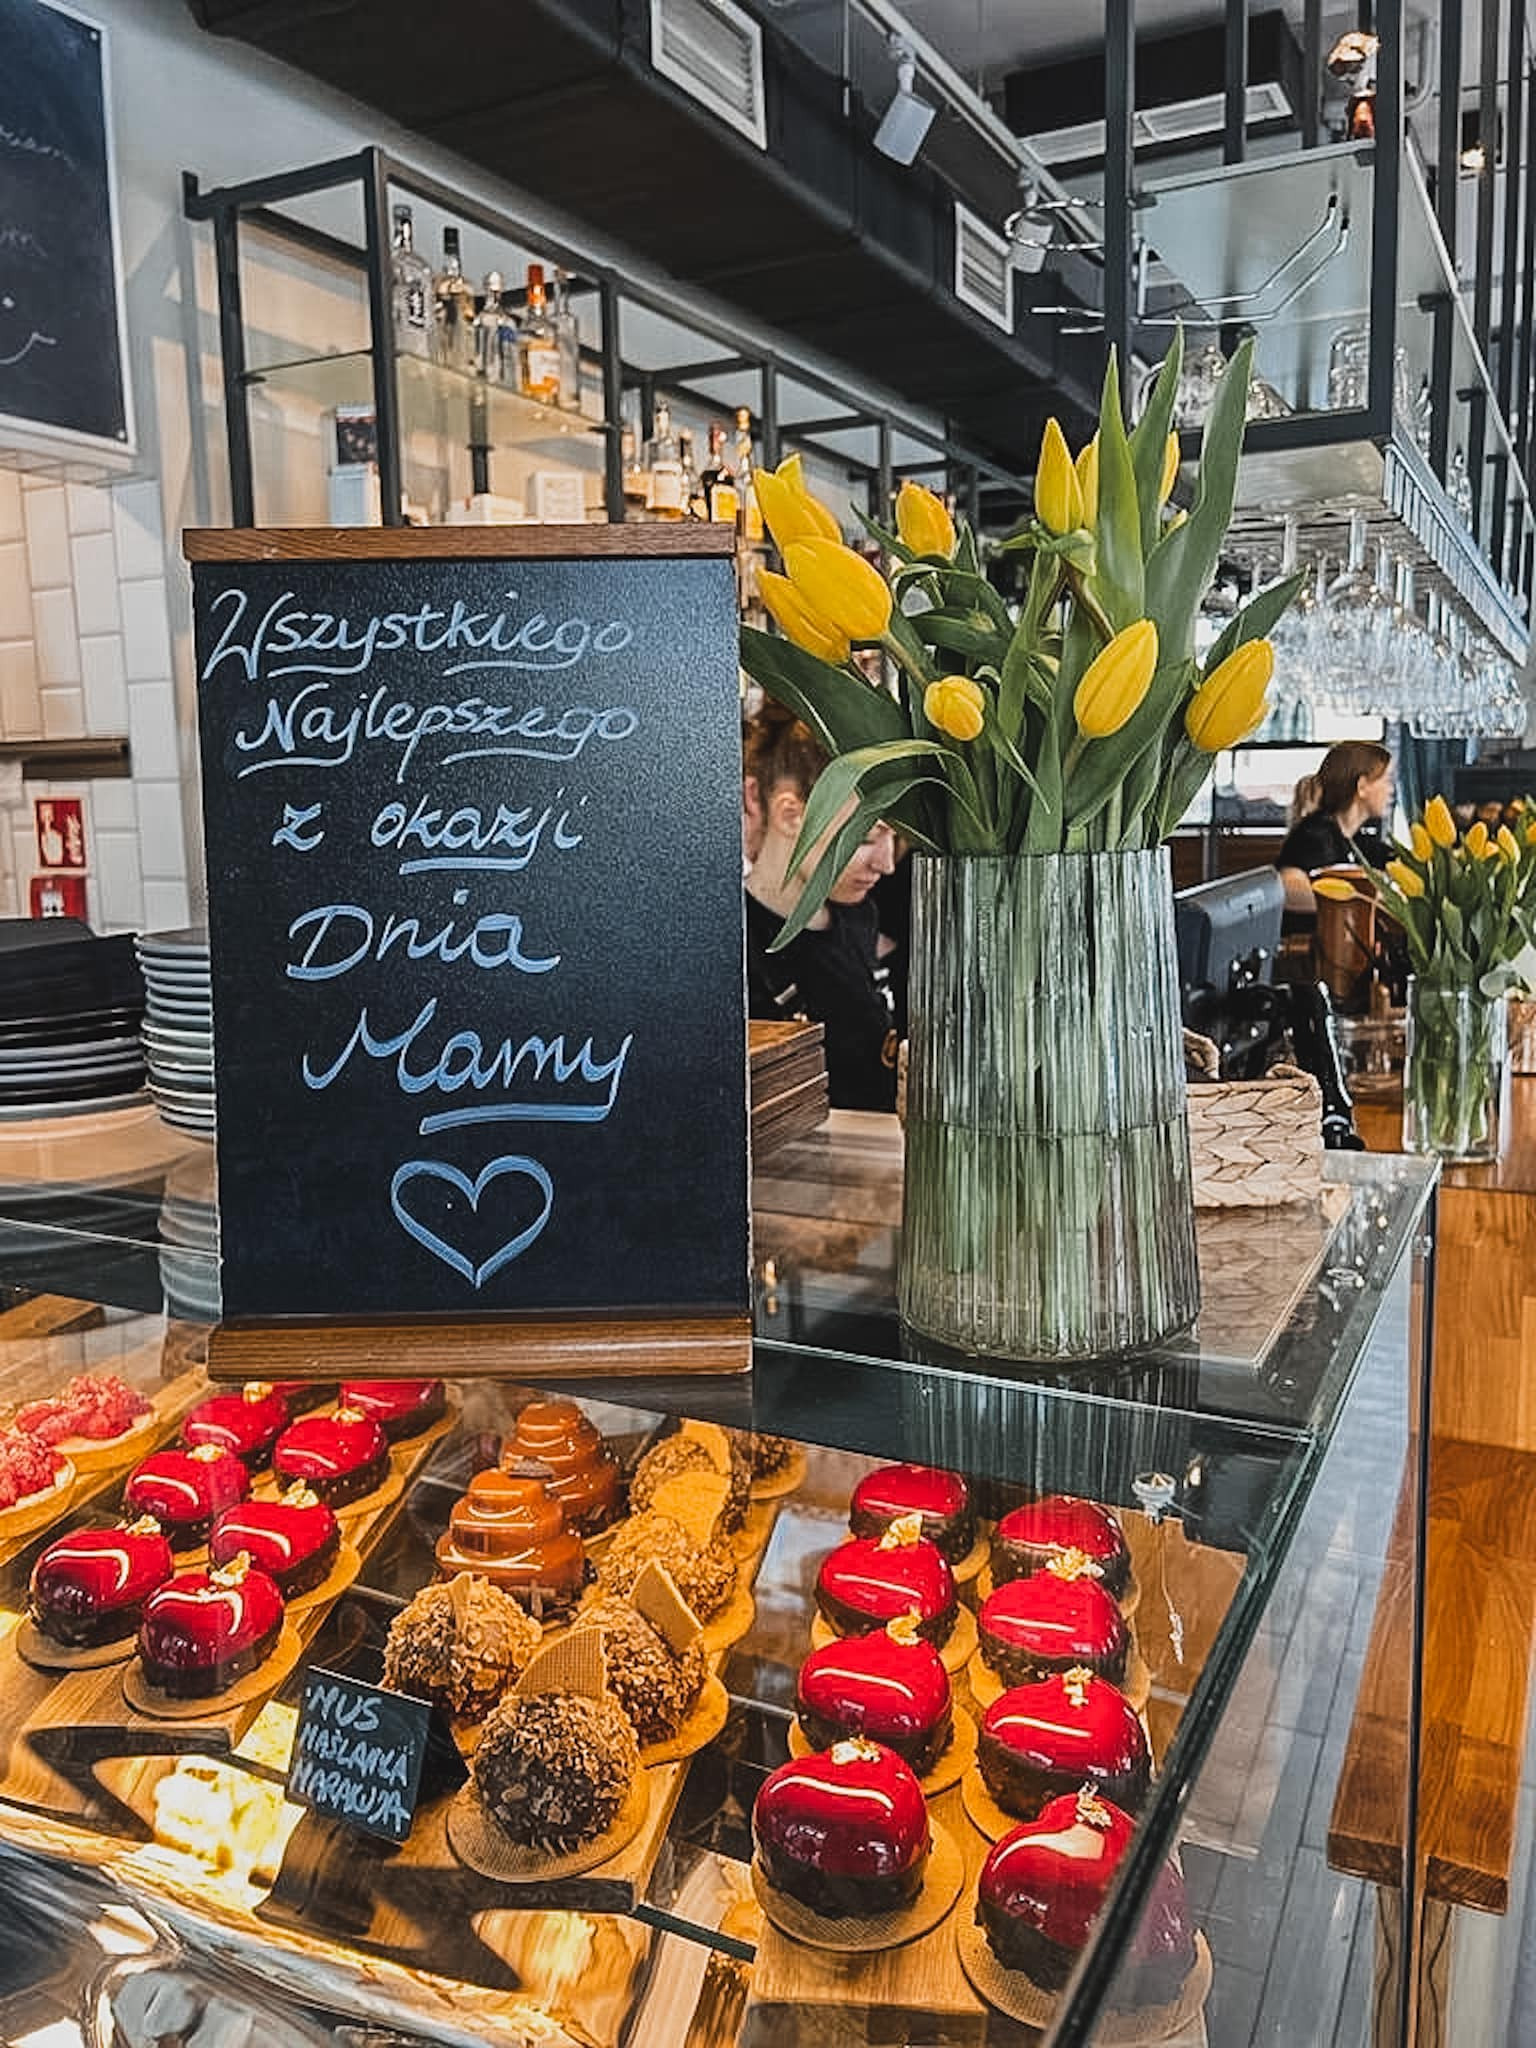 Wszystkiego
Najlepszego
z okazji
Dnia
Mamy
MUS
MAŚLANKA
MARAKUJA